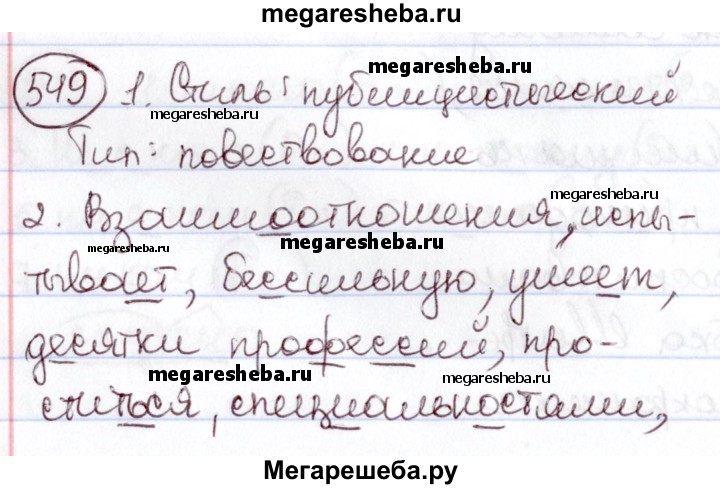 megaresheba.ru
549 1. Стиль: публицистический
megaresheba.ru
megaresheba.ru
Тип: повествование
megaresheba.ru
2. Взаимоотношения, испы-
megaresheba.ru
megaresheba.ru
тывает, бессильную, умеет,
десятки профессий, про-
megaresheba.ru
megaresheba.ru
ститься, специальностями,
Мегарешеба.ру